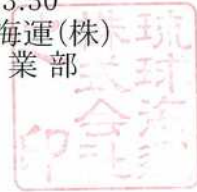 3.30
海運(株)
業部
琉球海運
株式会社
印